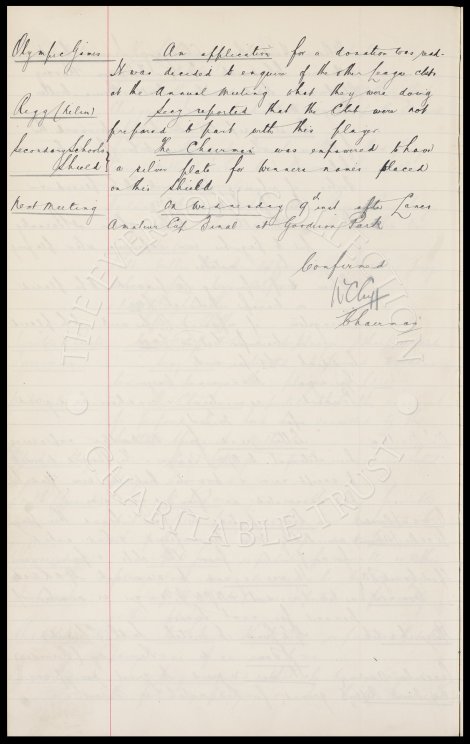 Olympic Games An application for a donation was made
It was decided to enquire of the other League clubs
at the Annual Meeting what they were doing
Rigg (Nelson) Secy reported that the Club were not
prepared to part with this player.
Secondary Schools Shield } The Chairman was empowered to have
a silver plate for winners names placed
on this shield
Next Meeting On Wednesday 9th inst after Lancs
Amateur Cup Final at Goodison Park
Confirmed
W C Cuff
Chairman
THE EVERTON COLLECTION
CHARITABLE TRUST